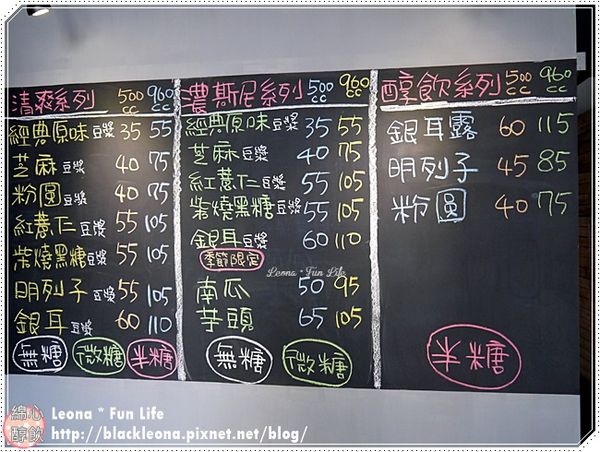 清爽系列 500cc 960cc
經典原味豆漿 35 55
芝麻豆漿 40 75
粉圓豆漿 40 75
紅薏仁豆漿 55 105
柴燒黑糖豆漿 55 105
明列子豆漿 55 105
銀耳豆漿 60 110
無糖 微糖 半糖
濃斯尼系列 500cc 960cc
經典原味豆漿 35 55
芝麻豆漿 40 75
紅薏仁豆漿 55 105
柴燒黑糖豆漿 55 105
銀耳豆漿 60 110
季節限定
南瓜 50 95
芋頭 65 105
無糖 微糖
醇飲系列 500cc 960cc
銀耳露 60 115
明列子 45 85
粉圓 40 75
半糖
Leona * Fun Life
綿心醇飲
Leona * Fun Life
http://blackleona.pixnet.net/blog/